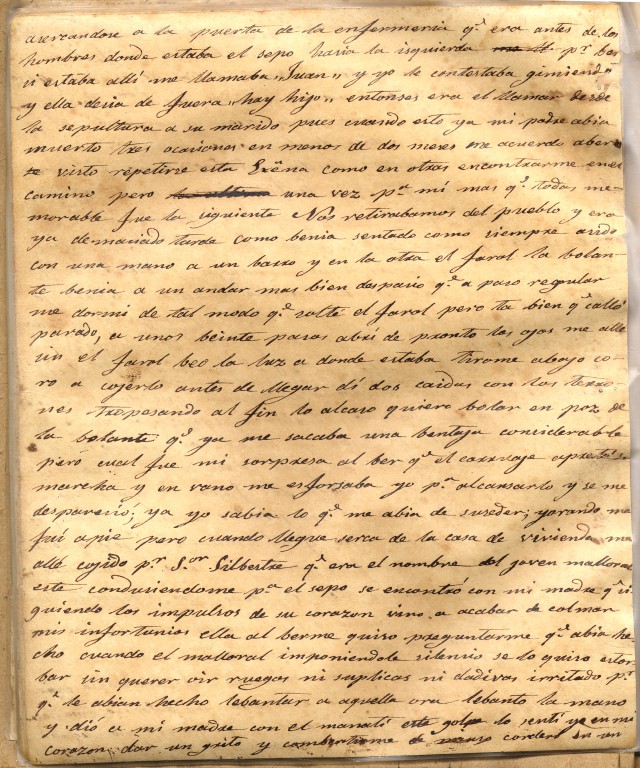 acercandose a la puerta de la enfermeria q.e era antes de los
hombres donde estaba el sepo hasia la isquierda p.r ber
si estaba allí me llamaba ,,Juan,, y yo le contestaba gimiendo
y ella desia de fuera ,,hay hijo,, entonses era el llamar desde
la sepultura a su marido pues cuando esto ya mi padre abia
muerto tres ocaciones en menos de dos meses me acuerdo aber
visto repetirse esta Exêna como en otras encontrarme en el
camino pero una vez p.a mí mas q.e todas me-
morable fue la siguiente Nos retirabamos del pueblo y era
ya demasiado tarde como benia sentado como siempre asido
con una mano a un barro y en la otra el farol la bolan-
te benia a un andar mas bien despasio q.e a paso regular
me dormi de tal modo q.e solté el farol pero ta bien q.e calló
parado, a unos beinte pasos abrí de pronto los ojos me allé
sin el farol beo la luz a donde estaba tirome abajo co-
rro a cojerlo antes de llegar dí dos caidas con los terro-
nes tropesando al fin lo alcaso quiero bolar en poz de
la bolante q.e ya me sacaba una bentaja considerable
pero cual fue mi sorpresa al ber q.e el carruaje apretó su
marcha y en vano me esforsaba yo p.r alcansarlo y se me
despareció; ya yo sabia lo q.e me abia de suseder; yorando me
fuí apie pero cuando llegue serca de la casa de vivienda me
allé cojido p.r S.or Silbestre q.e era el nombre del joven malloral
este condusiendome p.a el sepo se encontró con mi madre q.e si-
guiendo los impulsos de su corazon vino a acabar de colmar
mis infortunios ella al berme quiso preguntarme q.e abia he
cho cuando el malloral imponiendole silensio se lo quiso estor-
bar sin querer oir ruegos ni suplicas ni dadivas irritado p.r
q.e le abian hecho lebantar a aquella ora lebantó la mano
y dió a mi madre con el manatí este golpe lo sentí yo en mi
corazon dar un grito y combertirme de manso cordero en un